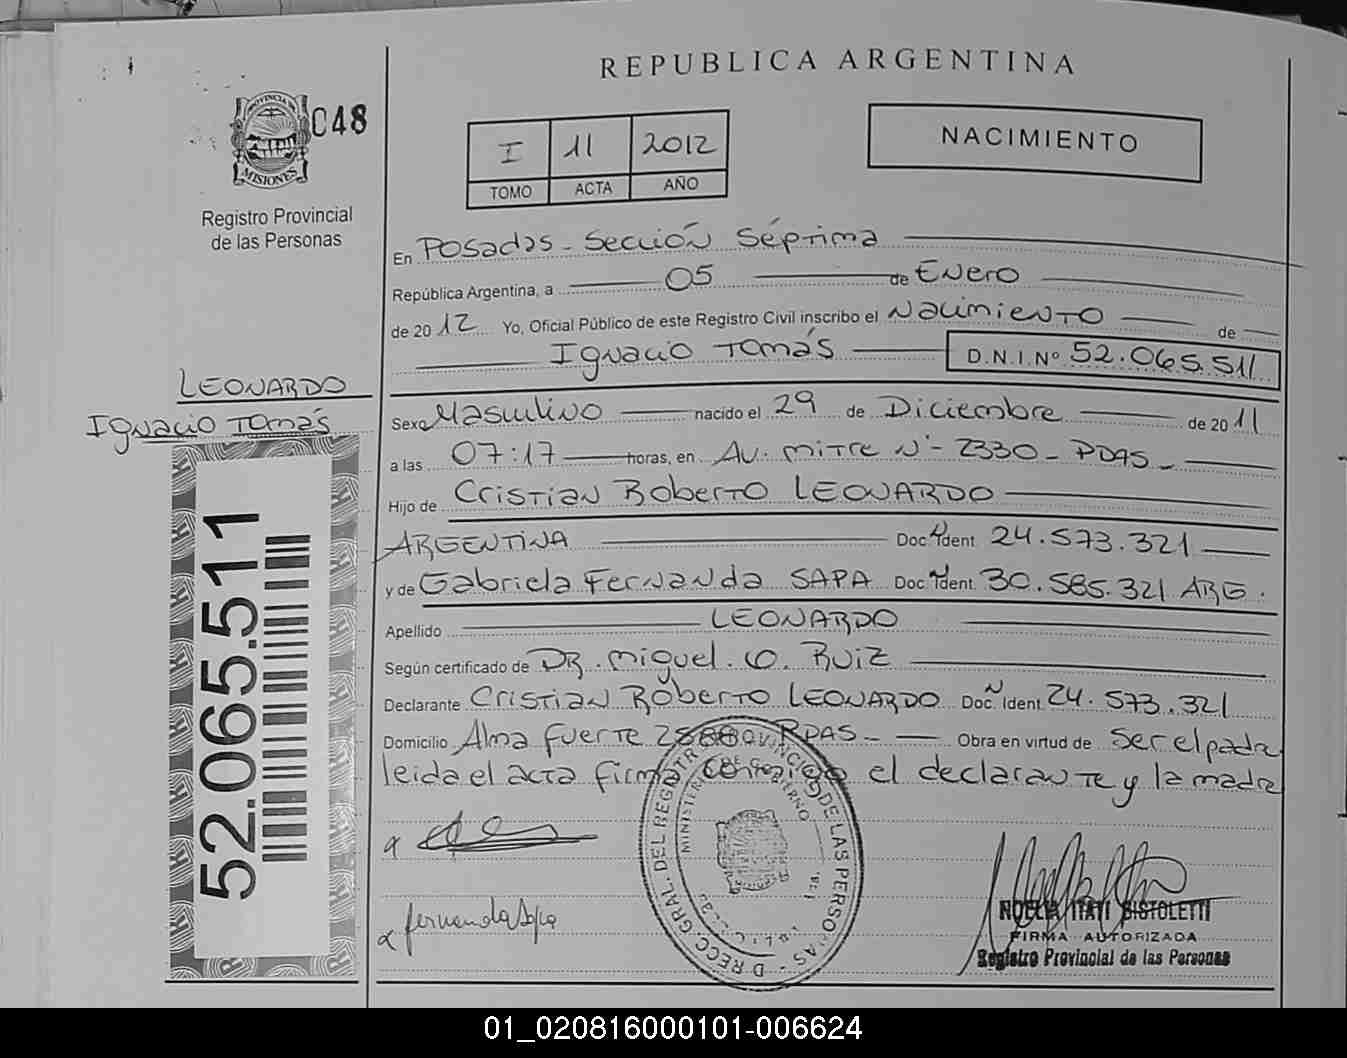 REPUBLICA ARGENTINA
048
PROVINCIA DE
MISIONES
Registro Provincial
de las Personas
I 11 2012
TOMO ACTA AÑO
NACIMIENTO
En Posadas - Sección Séptima
República Argentina, a 05 de Enero
de 2012 Yo, Oficial Público de este Registro Civil inscribo el Nacimiento de
Ignacio Tomás D.N.I. Nº 52.065.511
LEONARDO
Ignacio Tomás
Sexo Masculino nacido el 29 de Diciembre de 2011
a las 07:17 horas, en Av. Mitre Nº- 2330 - PDAS -
Hijo de Cristian Roberto LEONARDO
ARGENTINA Doc. Ident. 24.573.321
y de Gabriela Fernanda SAPA Doc. Ident. 30.585.321 ARG.
Apellido LEONARDO
Según certificado de DR. Miguel. O. Ruiz
Declarante Cristian Roberto LEONARDO Doc. Ident. 24.573.321
Domicilio Alma Fuerte 2888 PDAS - Obra en virtud de Ser el padre
leida el acta firma conmigo el declarante y la madre
52.065.511
fernanda Sapa
NOELIA ITATI BISTOLETTI
FIRMA AUTORIZADA
Registro Provincial de las Personas
01_020816000101-006624